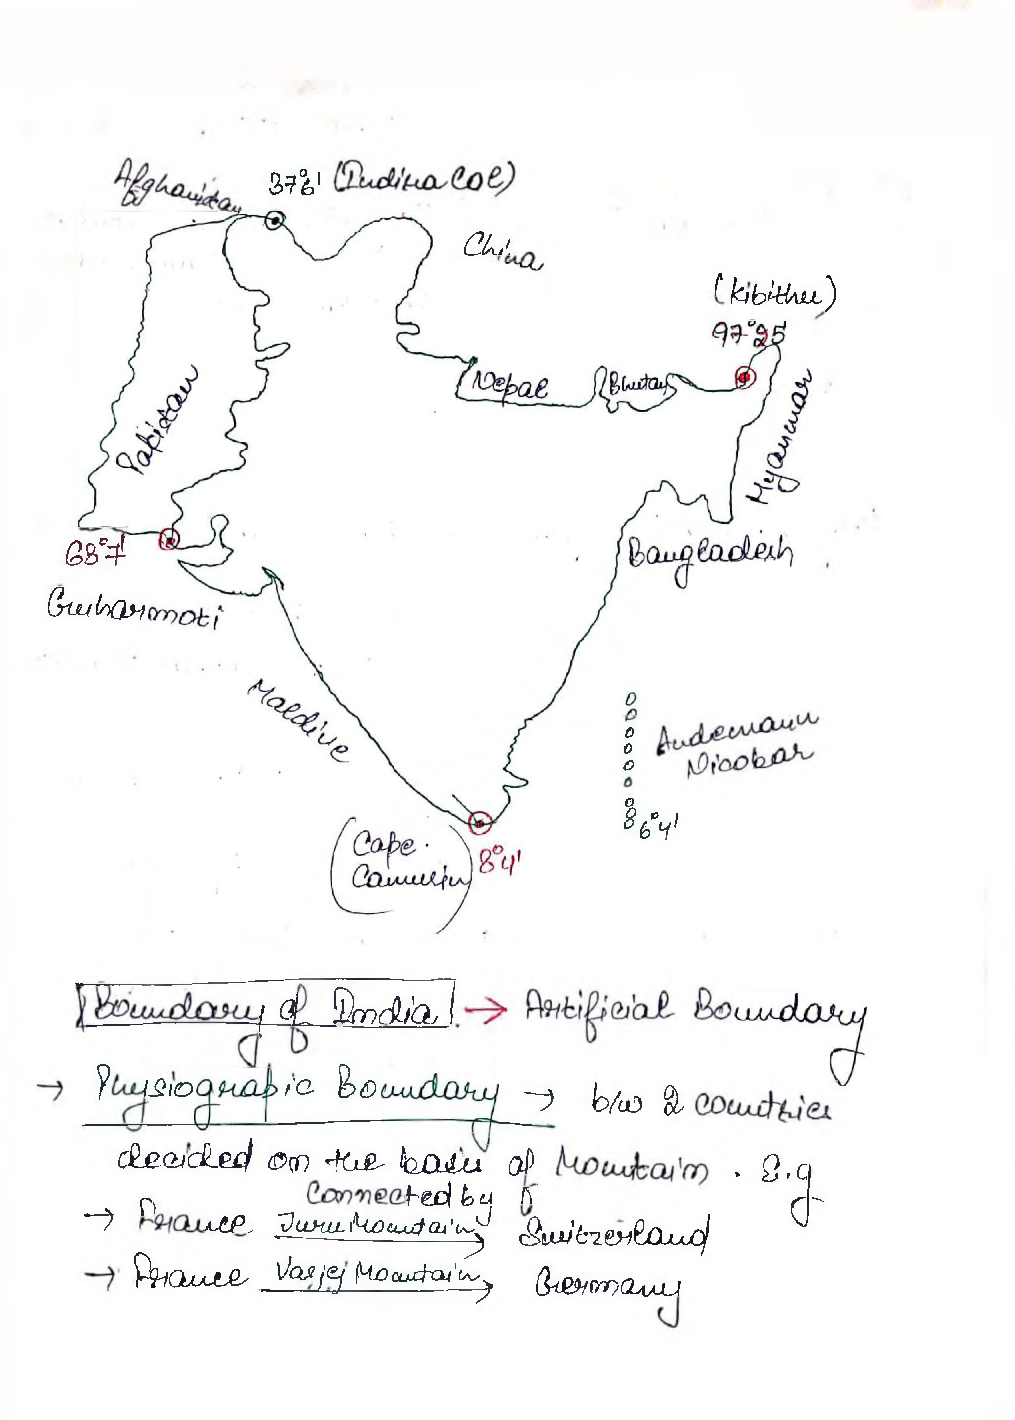 Afghanistan
37°6' (Indira Col)
China
(Kibithu)
97°25'
Nepal
Bhutan
Myanmar
Pakistan
68°7'
Bangladesh
Guharmoti
Maldive
Andemann
Nicobar
6°4'
(Cape.
Camurin)
8°4'
Boundary of India → Artificial Boundary
→ Physiograpic Boundary → b/w 2 countries
decided on the basis of Mountain. E.g
Connected by
→ France Juru Mountain Switzerland
→ France Vasjej Mountain Germany